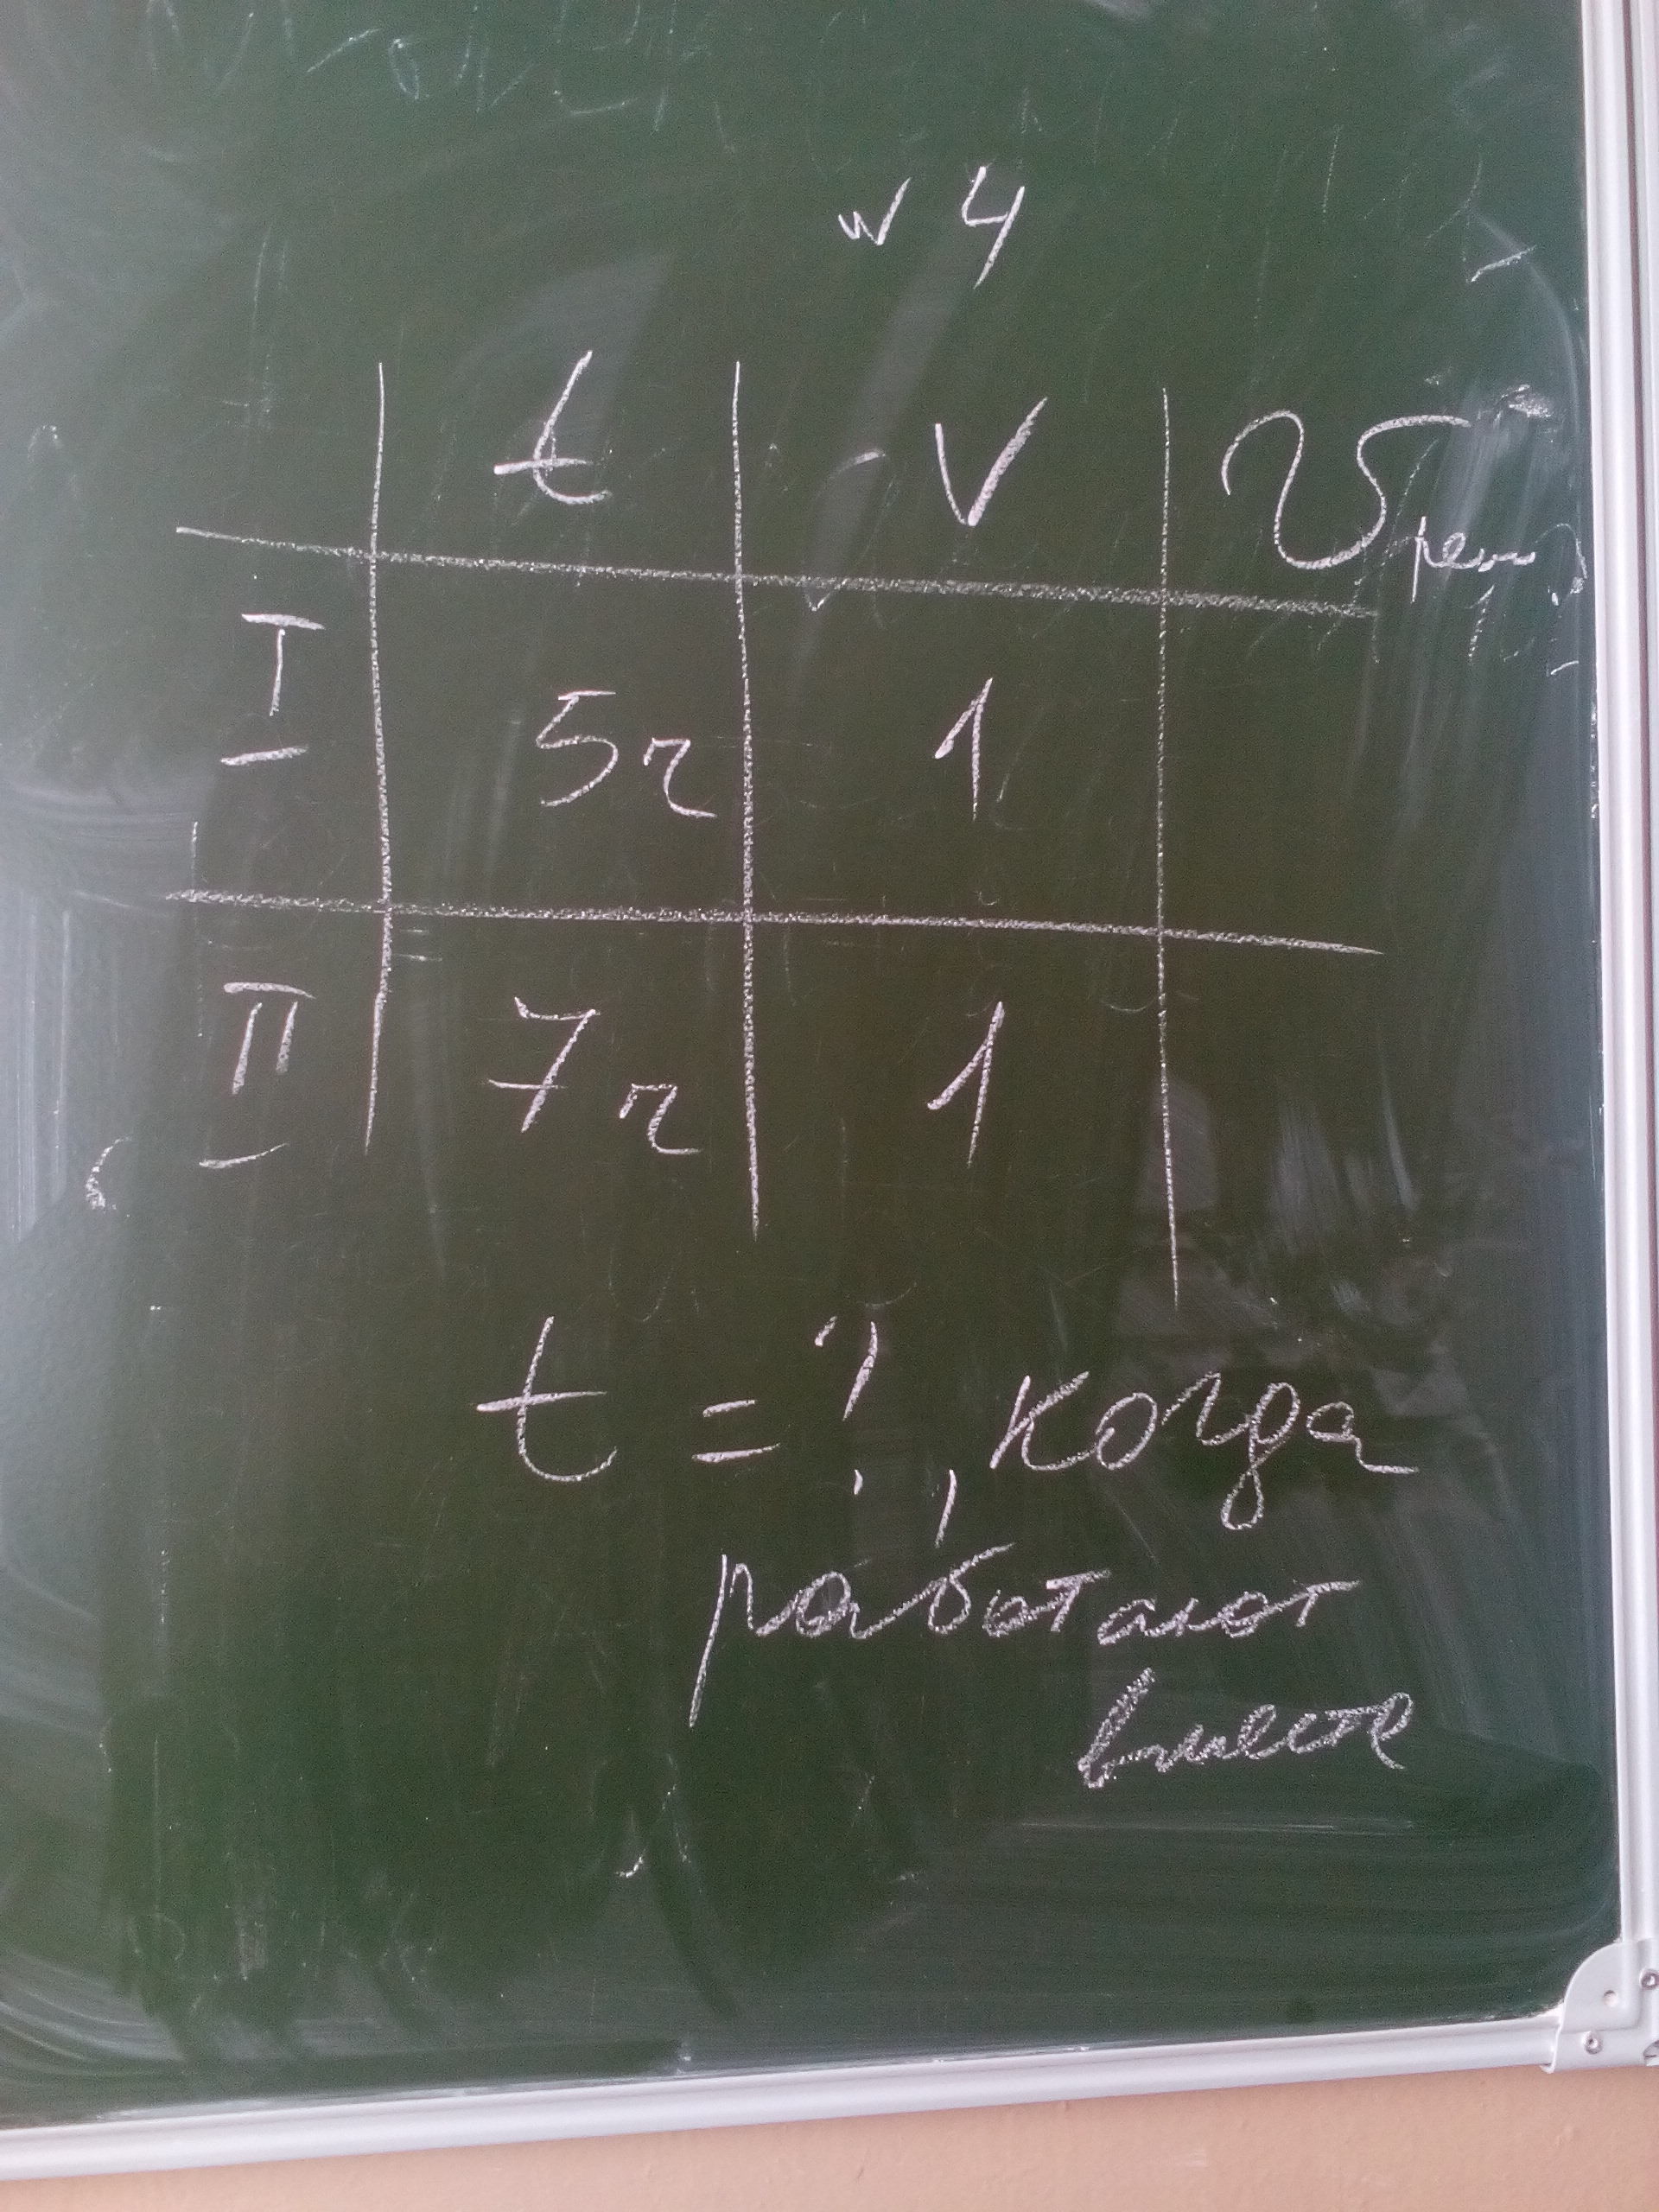 № 4
t V V
I 5ч 1
II 7ч 1
t = ?, когда
работают
вместе